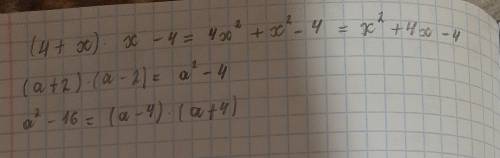 (4 + x) · x - 4 = 4x² + x² - 4 = x² + 4x - 4
(a + 2) · (a - 2) = a² - 4
a² - 16 = (a - 4) · (a + 4)